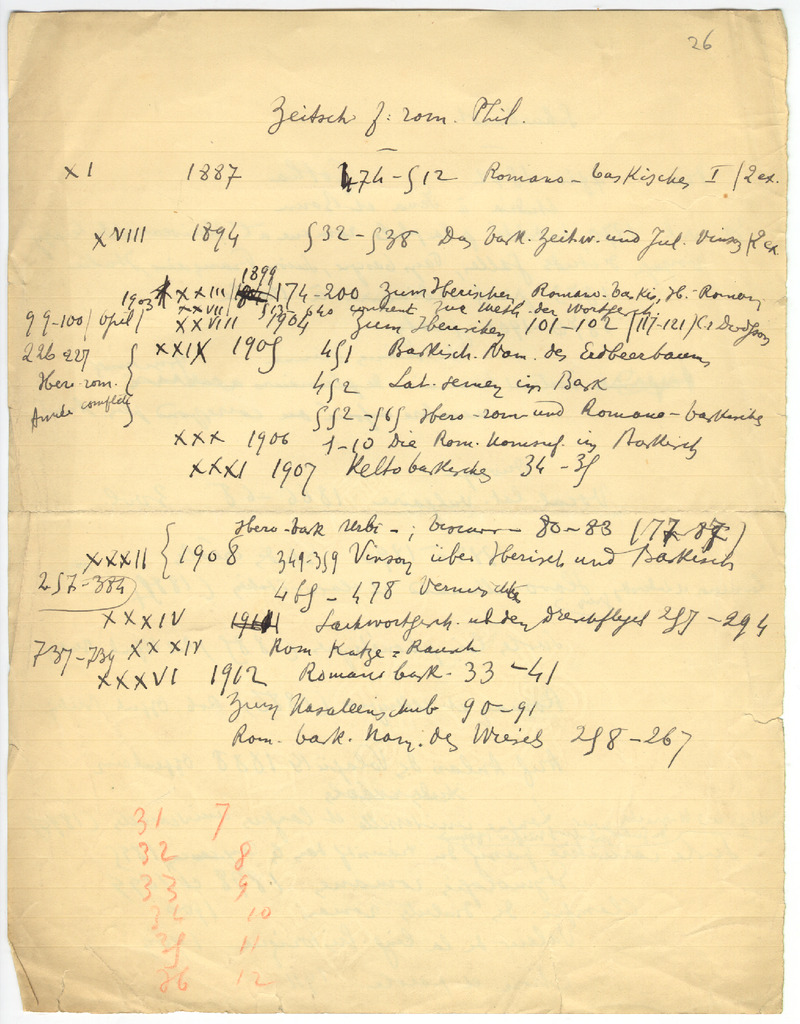 26
Zeitsch f. rom. Phil.
XI 1887 474-512 Romano-baskisches I / 2 ex.
XVIII 1894 532-538 Das bask. Zeitw. und Jul. Vinson / 2 ex
1899
XXIII / 174-200 Zum Iberischen, Romano-baskis, Ib.-Roman
1903 XXVII 
99-100 / April / XXVIII 1904 Zum Iberischen 101-102 (117-121)
226 227 XXIX 1905 451 Baskisch. Nam. des Erdbeerbaums
Ibero rom. 452 Lat. semen im Bask
Année complète 552-565 Ibero-rom und Romano-baskisches
XXX 1906 1-10 Die Rom. Nomsuf. im Baskisch
XXXI 1907 Keltobaskisches 34-35
Ibero-bask 80-83 (77-82)
XXXII 1908 349-359 Vinson über Iberisch und Baskisch
257-384 465-478
XXXIV 1911 Sachwortgesch. üb den Dreschflegel 257-294
737-739 XXXIV Rom Katze = Raush
XXXVI 1912 Romano bask. 33-41
Zum Nasaleinschub 90-91
Rom. bask. Nam. des Wiesels 258-267
31 7
32 8
33 9
34 10
35 11
36 12